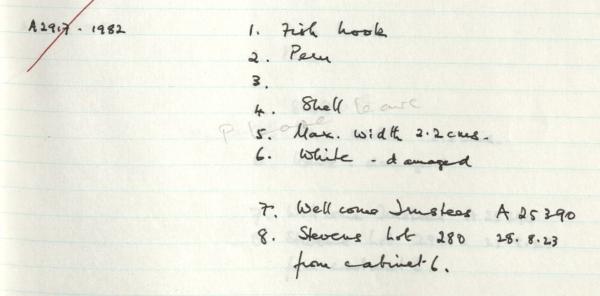 A2917 - 1982
1. Fish hook
2. Peru
3.
4. Shell
5. Max. width 2.2 cms.
6. White - damaged
7. Wellcome Trustees A 25390
8. Stevens Lot 280 28.8.23
from cabinet 6.